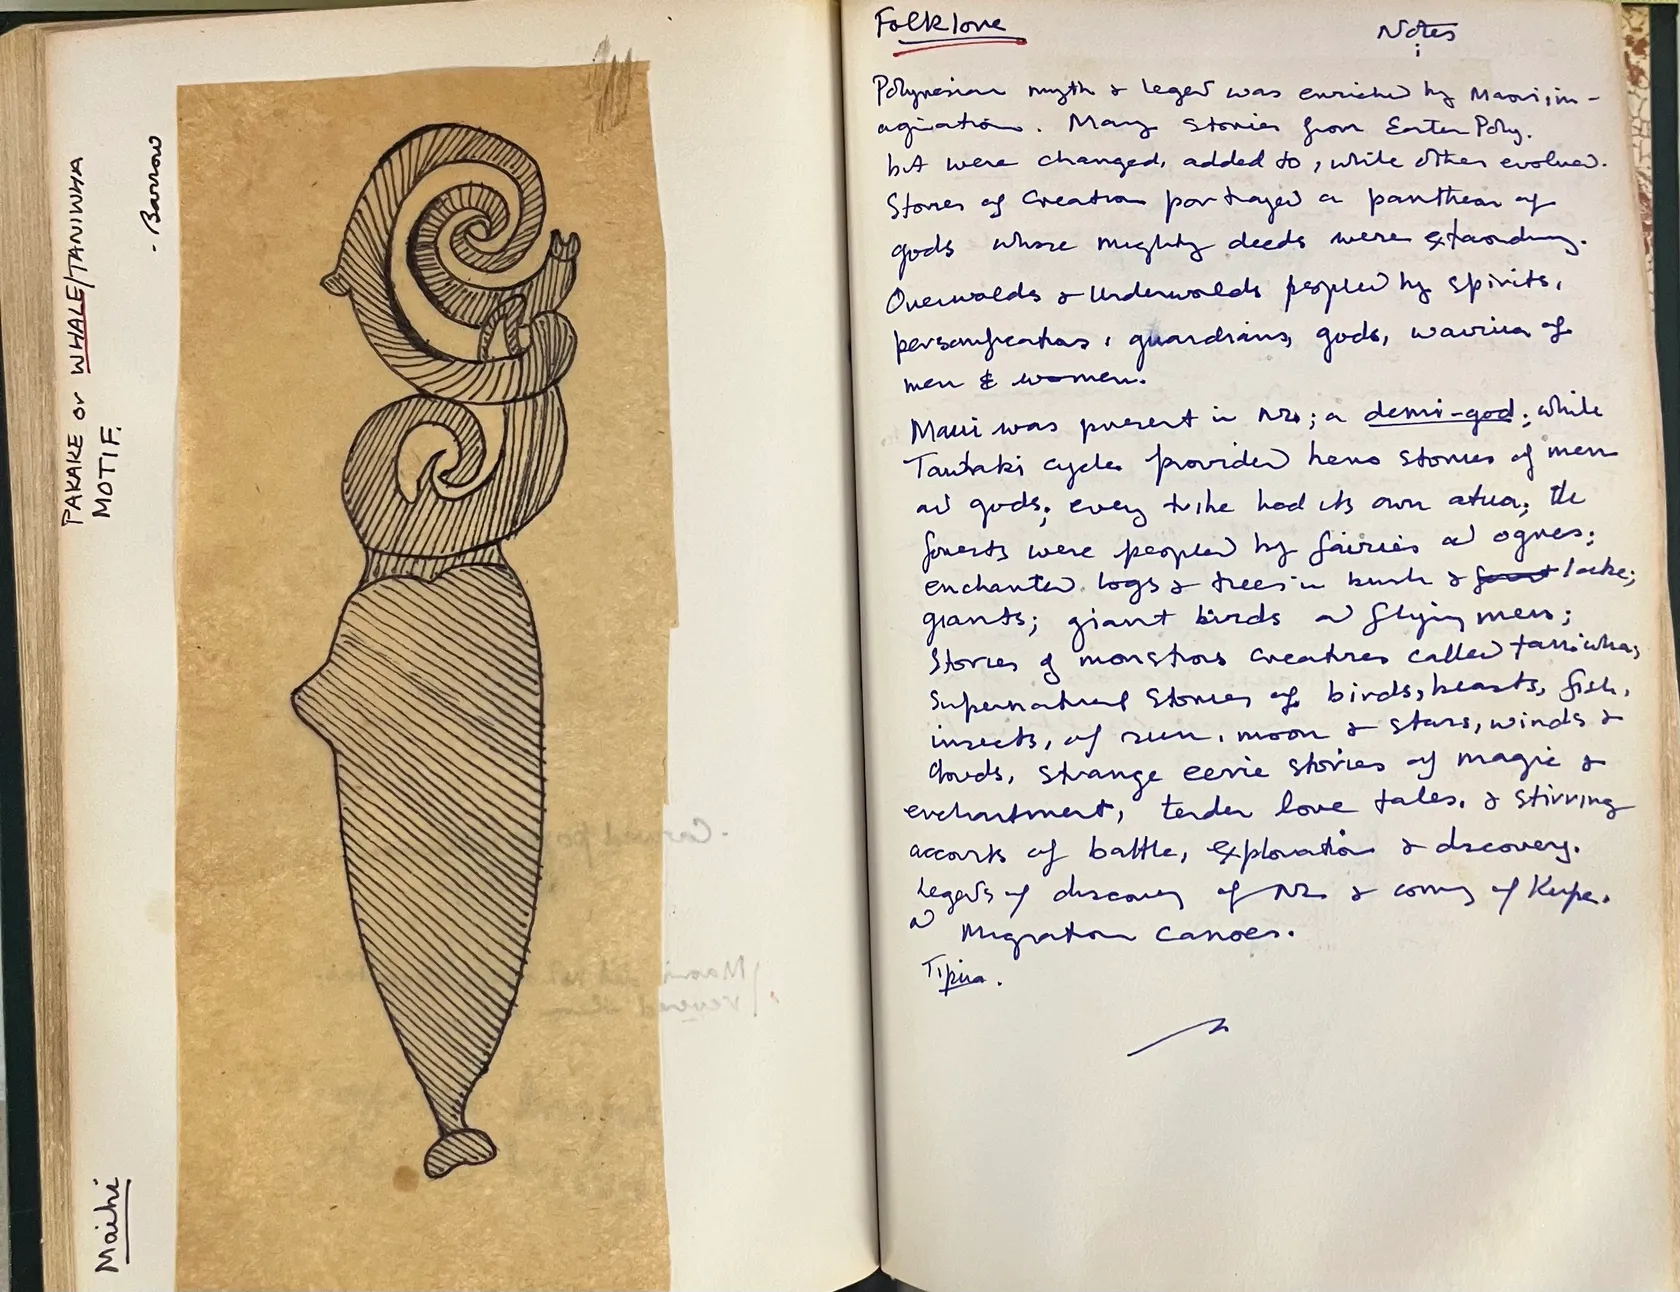 PAKAKE or WHALE/TANIWHA
MOTIF.
- Barrow
Maihi
Folklore
Notes
Polynesian myth & legend was enriched by Maori im-
agination. Many stories from Easter Poly.
but were changed, added to, while others evolved.
Stories of Creation portrayed a pantheon of
gods whose mighty deeds were extraordinary.
Overworlds & Underworlds peopled by spirits,
personifications, guardians, gods, warriors of
men & women.
Maui was present in NZ; a demi-god; while
Tawhaki cycle provided hero stories of men
and gods; every tribe had its own atua; the
forests were peopled by fairies and ogres;
enchanted logs & trees in bush & lake;
giants; giant birds and flying men;
Stories of monstrous creatures called taniwha,
Supernatural stories of birds, beasts, fish,
insects, of sun, moon & stars, winds &
clouds, strange eerie stories of magic &
enchantment, tender love tales, & stirring
accounts of battle, exploration & discovery.
Legends of discovery of NZ & coming of Kupe.
and Migration Canoes.
Tipua.